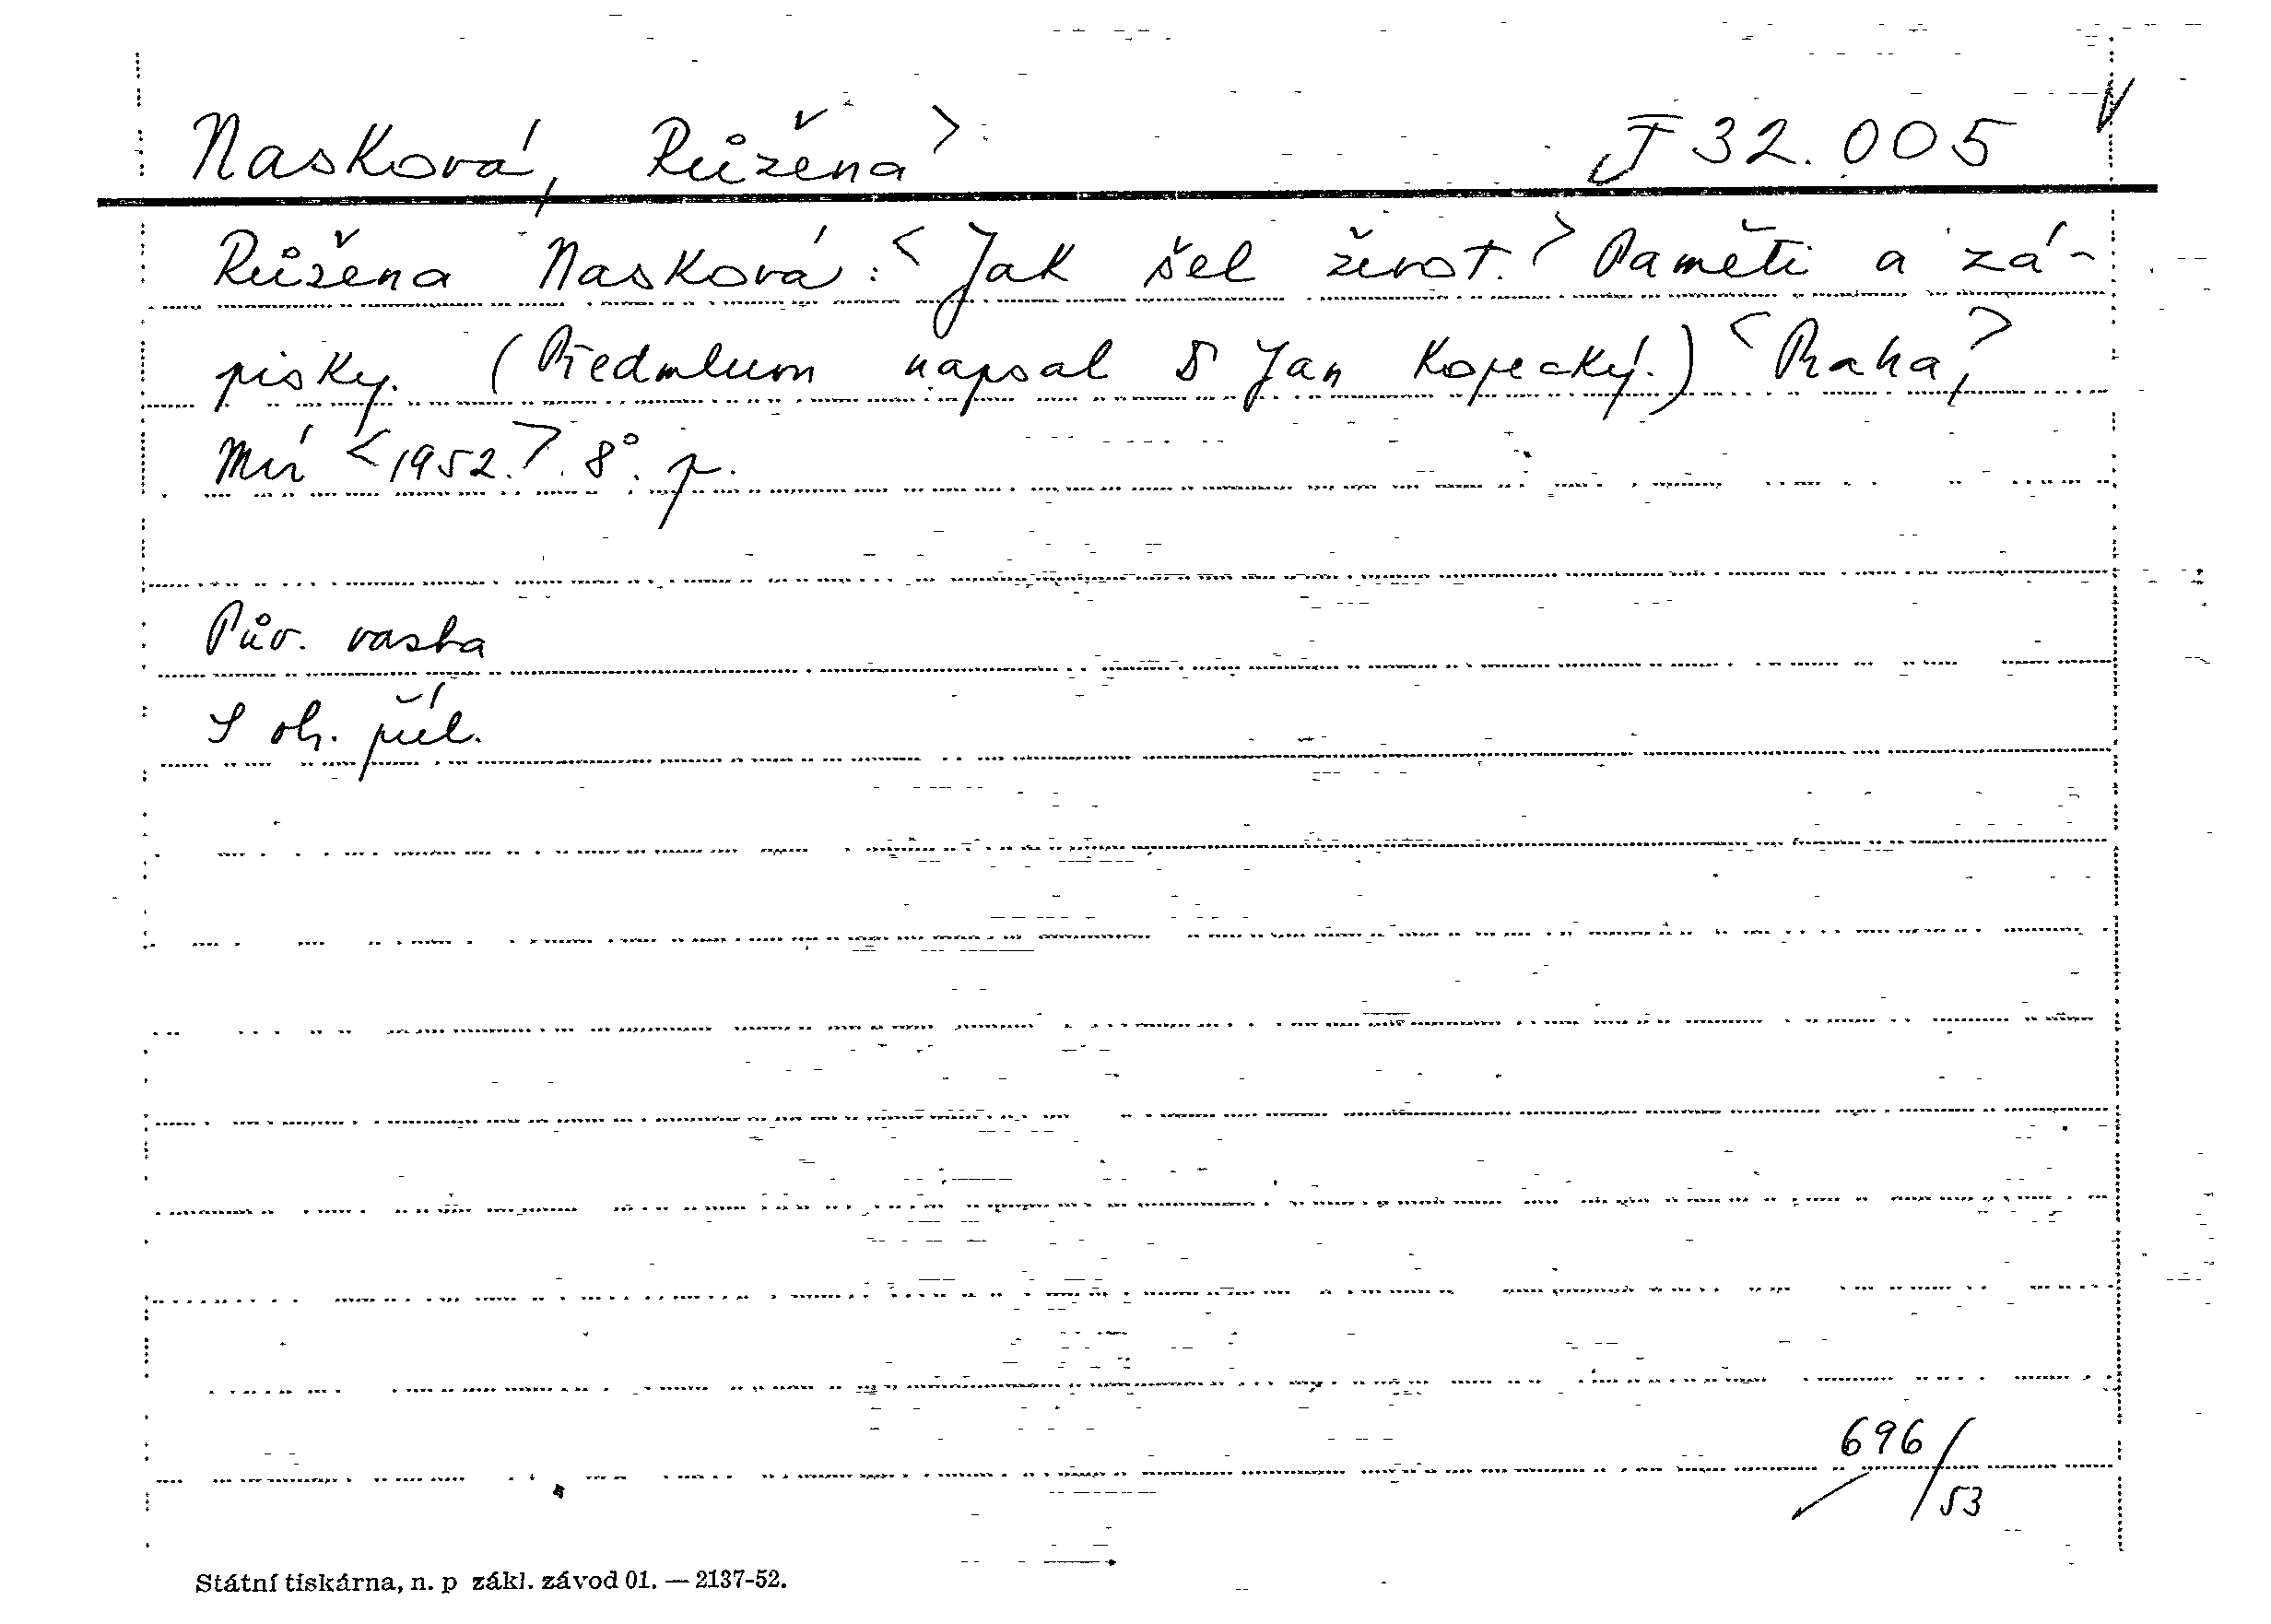 Nasková, Růžena > J 32.005
Růžena Nasková: <Jak šel život.> Paměti a zá-
pisky. (Předmluvu napsal Jan Kopecký.) <Praha,>
Mír <1952.> 8°. p.
Pův. vazba
S obr. příl.
696/53
Státní tiskárna, n. p. zákl. závod 01. — 2137-52.